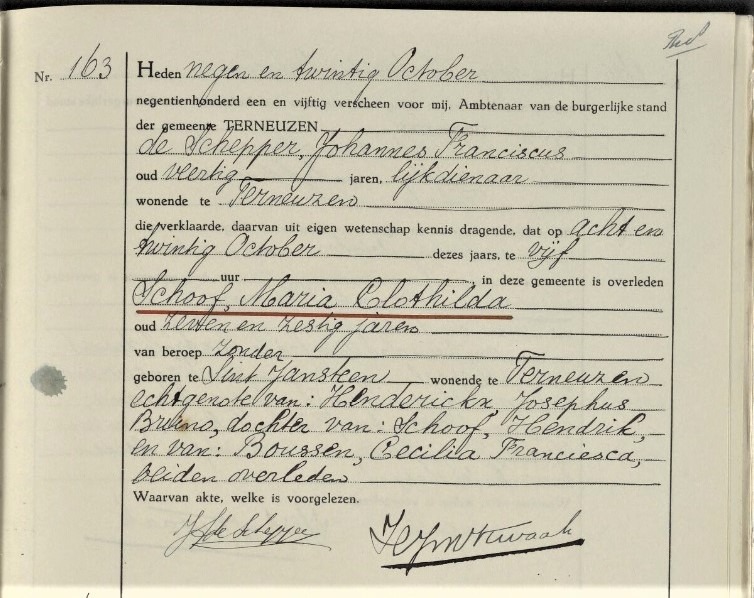 Nr. 163
Heden negen en twintig October
negentienhonderd een en vijftig verscheen voor mij, Ambtenaar van de burgerlijke stand
der gemeente TERNEUZEN
de Schepper, Johannes Franciscus
oud veertig jaren, lijkdienaar
wonende te Terneuzen
die verklaarde, daarvan uit eigen wetenschap kennis dragende, dat op acht en
twintig October dezes jaars, te vijf
uur , in deze gemeente is overleden
Schoof, Maria Clothilda
oud zeven en zestig jaren
van beroep zonder
geboren te Sint Jansteen wonende te Terneuzen
echtgenote van: Henderickx, Josephus
Bruno, dochter van: Schoof, Hendrik,
en van: Boussen, Cecilia Franciesca,
beiden overleden
Waarvan akte, welke is voorgelezen.
de Schepper